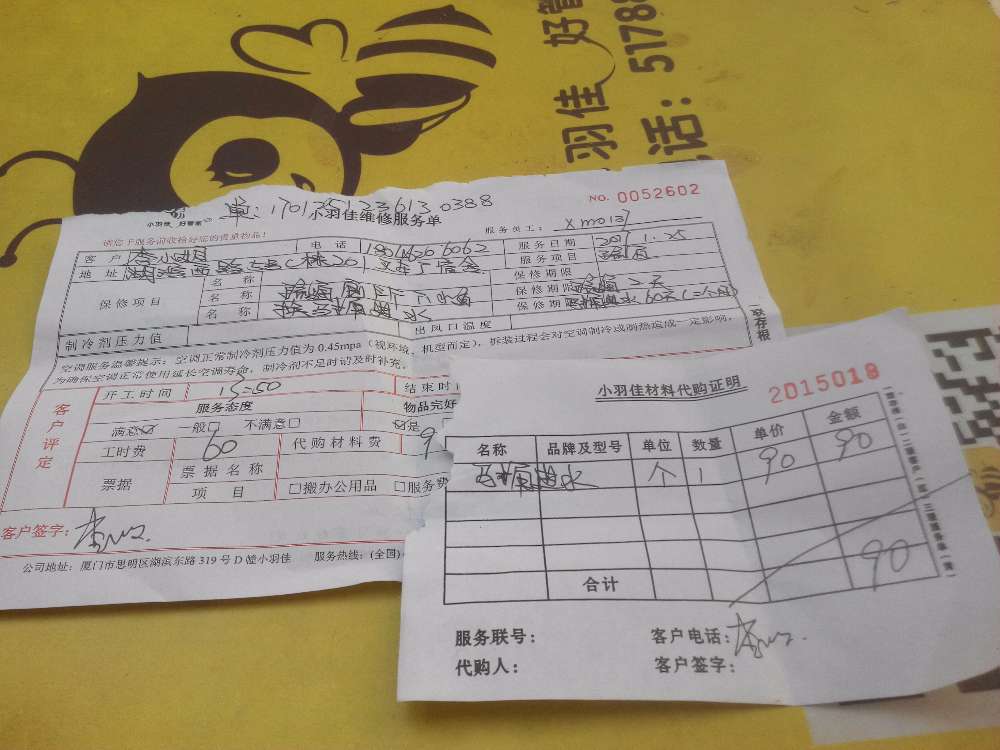 羽佳 好管
话：5178
小羽佳 好管家
单：170125123613 0388
NO. 0052602
小羽佳维修服务单
服务员工： xm0137
请您于服务前收检好您的贵重物品！
客户 李小姐 电话 服务日期 2017.1.25
地址 服务项目
保修项目 名称 保修期限
名称 保修期限
名称 保修期限
制冷剂压力值 出风口温度
空调服务温馨提示：空调正常制冷剂压力值为 0.45mpa（视环境、机型而定），拆装过程会对空调制冷或制热造成一定影响，
为确保空调正常使用延长空调寿命，制冷剂不足时请及时补充。
客户评定
开工时间 15:50 结束时
服务态度 物品完好
满意 一般□ 不满意□ 是
工时费 60 代购材料费 9
票据 票据名称
项目 □搬办公用品 □服务费
客户签字：
公司地址：厦门市思明区湖滨东路 319 号 D 幢小羽佳 服务热线：(全国)
小羽佳材料代购证明
2015018
名称 品牌及型号 单位 数量 单价 金额
个 1 90 90
合计 90
服务联号： 客户电话：
代购人： 客户签字：